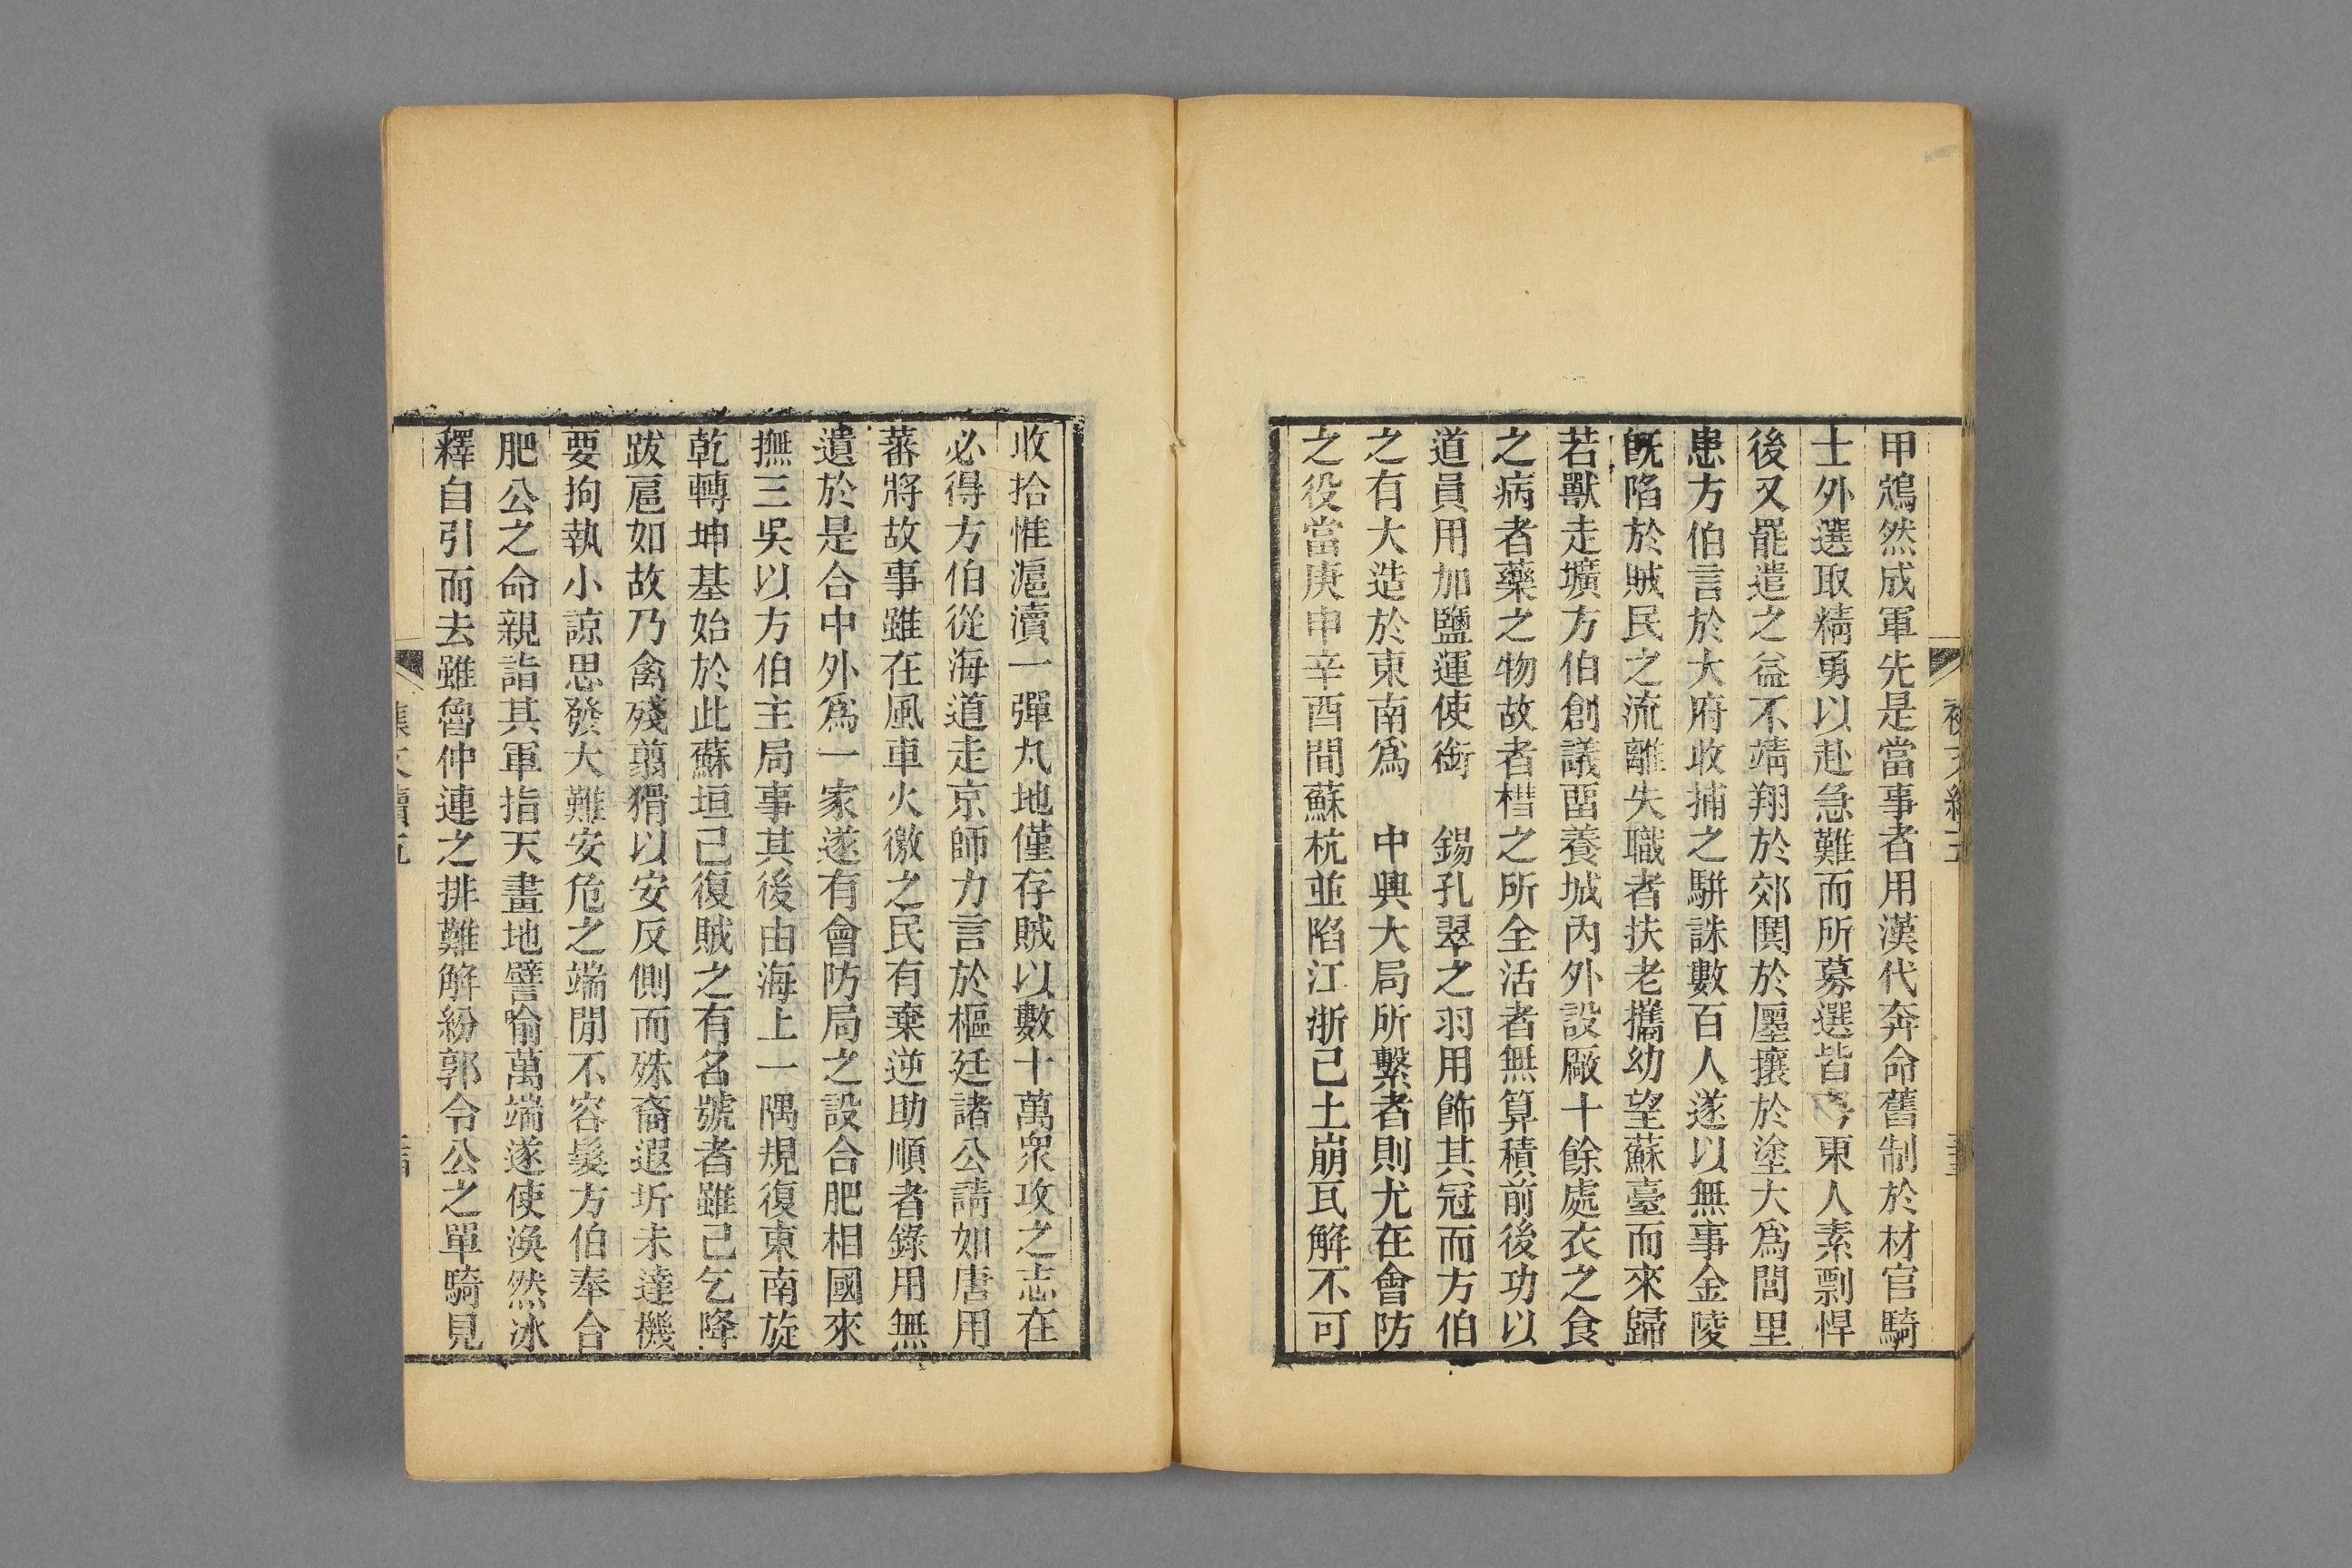 甲鴆然成軍先是當事者用漢代奔命舊制於材官騎
士外選取精勇以赴急難而所募選皆粤東人素剽悍
後又罷遣之益不靖翔於郊鬨於廛攘於塗大爲閭里
患方伯言於大府收捕之駢誅數百人遂以無事金陵
旣陷於賊民之流離失職者扶老攜幼望蘇臺而來歸
若獸走壙方伯創議畱養城內外設厰十餘處衣之食
之病者藥之物故者槥之所全活者無算積前後功以
道員用加鹽運使銜　錫孔翠之羽用飾其冠而方伯
之有大造於東南爲　中興大局所繫者則尤在會防
之役當庚申辛酉間蘇杭並陷江浙已土崩瓦解不可
收拾惟滬瀆一彈丸地僅存賊以數十萬衆攻之志在
必得方伯從海道走京師力言於樞廷諸公請如唐用
蕃將故事雖在風車火徼之民有棄逆助順者錄用無
遺於是合中外爲一家遂有會防局之設合肥相國來
撫三吳以方伯主局事其後由海上一隅規復東南旋
乾轉坤基始於此蘇垣已復賊之有名號者雖已乞降
跋扈如故乃禽殘翦猾以安反側而殊裔遐圻未達機
要拘執小諒思發大難安危之端閒不容髮方伯奉合
肥公之命親詣其軍指天畫地譬喻萬端遂使渙然冰
釋自引而去雖魯仲連之排難解紛郭令公之單騎見